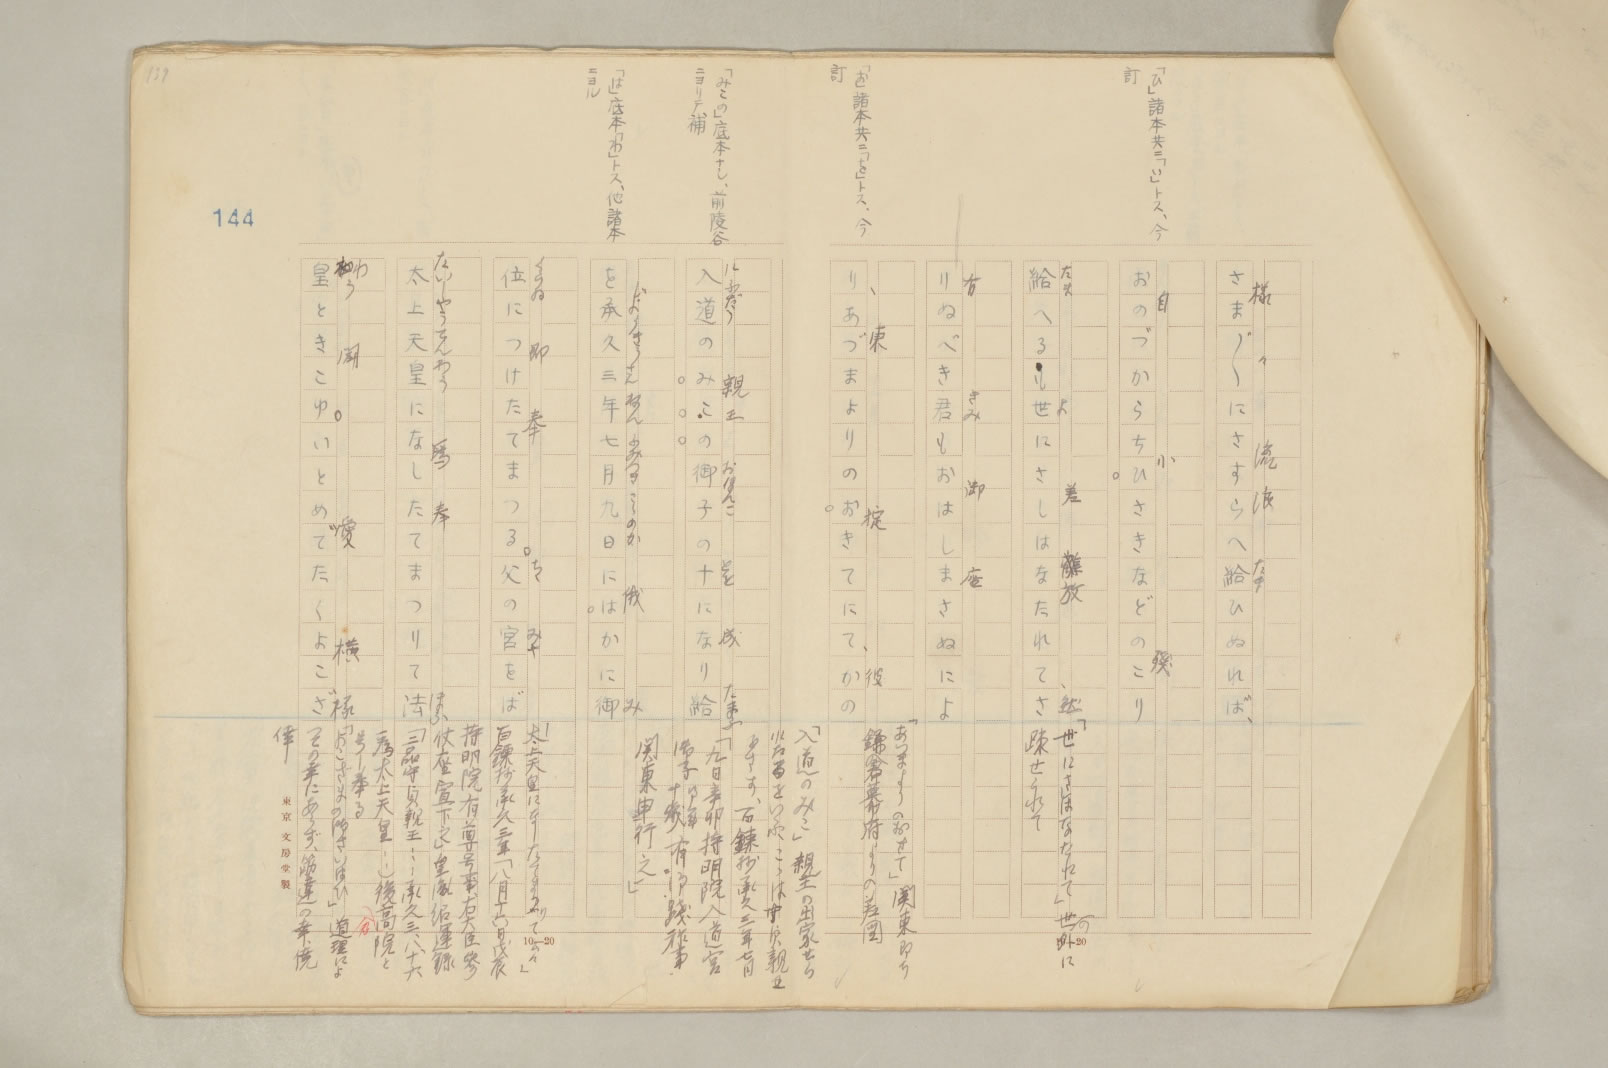 「ひ」諸本共ニ「い」トス、今
訂
「お」諸本共ニ「を」トス、今
訂
「みこの」底本ナシ、前陵谷
ニヨリテ補
「は」底本「わ」トス、他諸本
ニヨル
139
144
様々 流浪 たま
さま〲にさすらへ給ひぬれば、
自 小 残
おのづからちひさきなどのこり
たま よ 差 離放 、然
給へるも世にさしはなたれてさ
有 きみ 御座
りぬべき君もおはしまさぬによ
、東 掟 、彼
りあづまよりのおきてにてかの
親王 成 たまふ
入道のみこの御子の十になり給
俄 み
を承久三年七月九日にはかに御
くらゐ 即 奉 ちゝ みや
位につけたてまつる父の宮をば
為 奉 ほふ
太上天皇になしたてまつりて法
わう 聞 愛 横様
皇ときこゆいとめでたくよこざ
「世にさしはなたれて」世外に
疎せられて
「あづまよりのおきて」関東即ち
鎌倉幕府よりの差図
「入道のみこ」親王の出家せら
れたるをいふ、こゝは守貞親王
百錬抄承久三年七月
「九日辛卯持明院入道宮
関東申行之」
太上天皇になしたてまつりて云々」
百錬抄承久三年「八月十六日戊辰
持明院有尊号事右大臣参
仗座宣下之」皇胤紹運録
「三品守貞親王…承久三、八、十六
為太上天皇…」後高院と
号し奉る
「よこさまの御さいはひ」道理によ
その幸にあらず、筋違の幸、僥
倖
10—20
20
東京 文房堂製